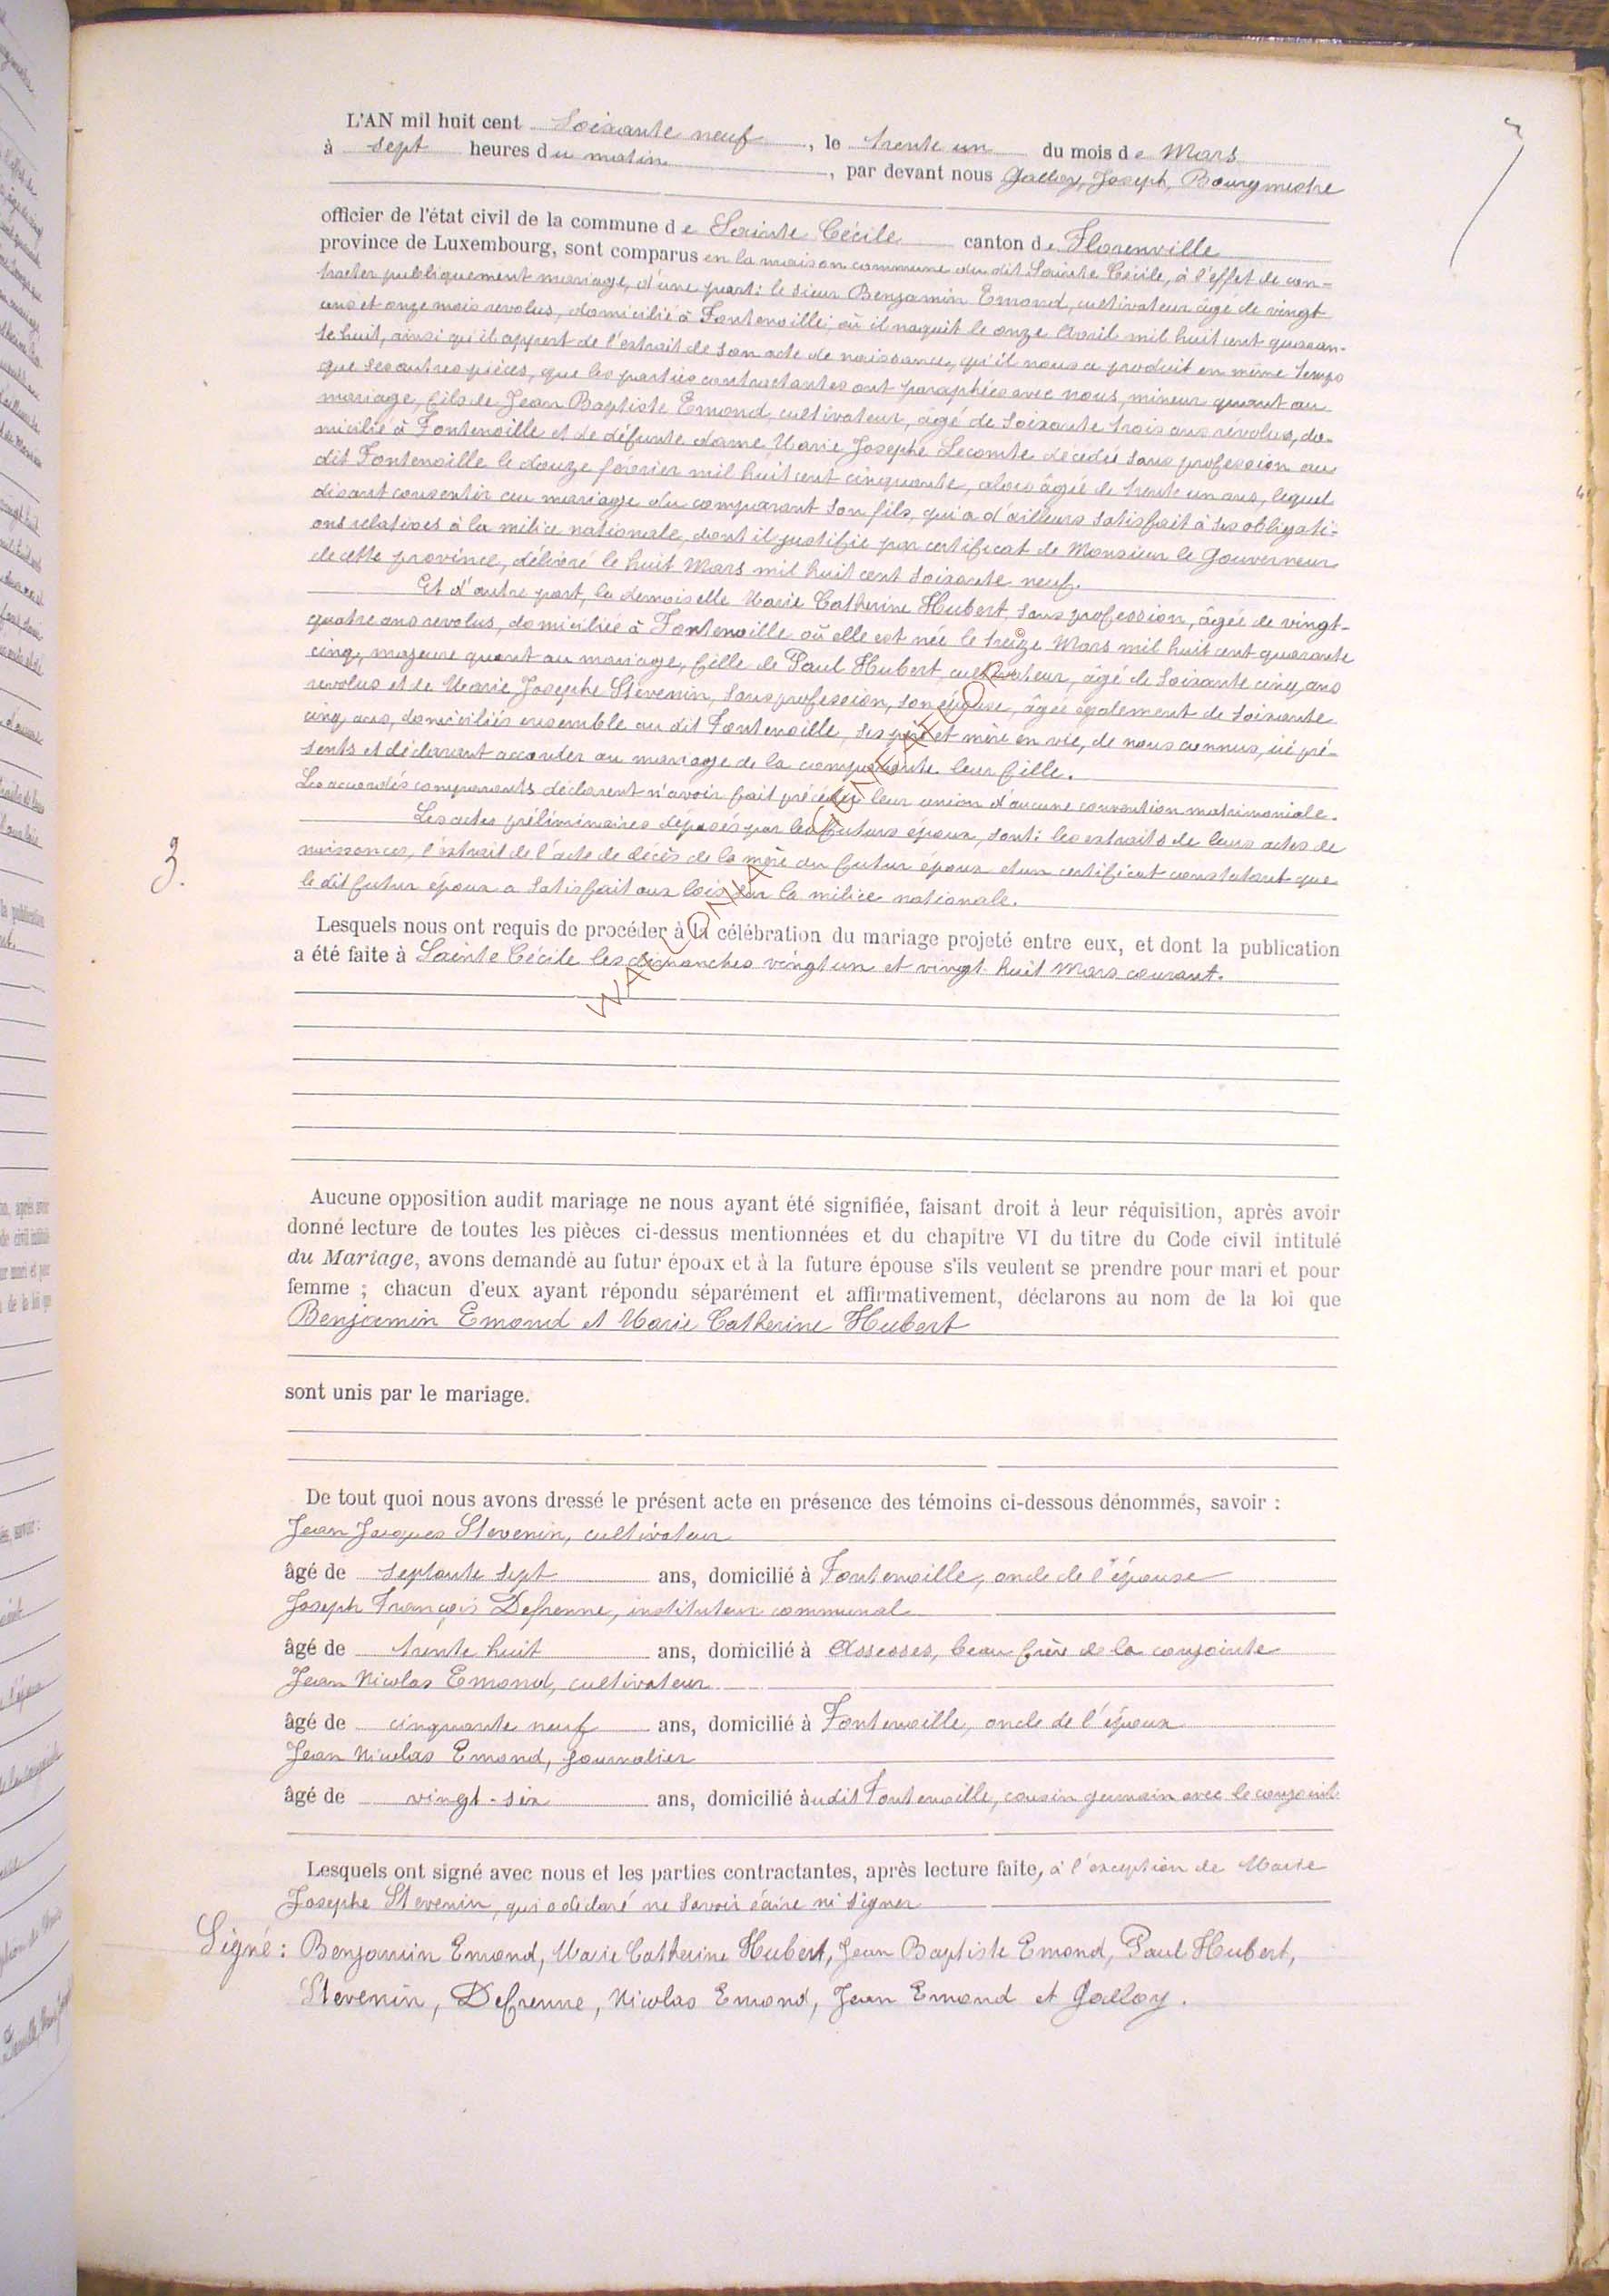 L'AN mil huit cent Soixante neuf, le trente un du mois de Mars
à sept heures du matin, par devant nous Galloy, Joseph, Bourgmestre
officier de l'état civil de la commune de Sainte Cécile canton de Florenville
province de Luxembourg, sont comparus en la maison commune du dit Sainte Cécile, à l'effet de con-
tracter publiquement mariage, d'une part: le sieur Benjamin Emond, cultivateur âgé de vingt
ans et onze mois revolus, domicilié à Fontenoille, où il naquit le onze Avril mil huit cent quaran-
te huit, ainsi qu'il appert de l'extrait de son acte de naissance, qu'il nous a produit en même temps
que ses autres pièces, que les parties contractantes ont paraphées avec nous, mineur quant au
mariage, fils de Jean Baptiste Emond, cultivateur, âgé de soixante trois ans révolus, do-
micilié à Fontenoille et de défunte dame Marie Josephe Lecomte décédée sans profession au
dit Fontenoille le douze février mil huit cent cinquante, alors âgée de trente un ans, lequel
disant consentir au mariage du comparant son fils, qui a d'ailleurs satisfait à ses obligati-
ons relatives à la milice nationale, dont il justifie par certificat de Monsieur le Gouverneur
de cette province, délivré le huit Mars mil huit cent soixante neuf.
Et d'autre part, la demoiselle Marie Catherine Hubert, sans profession, âgée de vingt-
quatre ans revolus, domiciliée à Fontenoille où elle est née le treize Mars mil huit cent quarante
cinq, majeure quant au mariage, fille de Paul Hubert, cultivateur, âgé de soixante cinq ans
revolus et de Marie Josephe Stévenin, sans profession, son épouse, âgée également de soixante
cinq ans, domiciliés ensemble au dit Fontenoille, ses père et mère en vie, de nous connus, ici pré-
sents et déclarant accorder au mariage de la comparante leur fille.
Les accordés comparants déclarent n'avoir fait précéder leur union d'aucune convention matrimoniale.
Les actes préliminaires déposés par les futurs époux, sont: les extraits de leurs actes de
naissances, l'extrait de l'acte de décès de la mère du futur époux et un certificat constatant que
le dit futur époux a satisfait aux lois sur la milice nationale.
3.
Lesquels nous ont requis de procéder à la célébration du mariage projeté entre eux, et dont la publication
a été faite à Sainte Cécile les dimanches vingt un et vingt huit Mars courant.
Aucune opposition audit mariage ne nous ayant été signifiée, faisant droit à leur réquisition, après avoir
donné lecture de toutes les pièces ci-dessus mentionnées et du chapitre VI du titre du Code civil intitulé
du Mariage, avons demandé au futur époux et à la future épouse s'ils veulent se prendre pour mari et pour
femme ; chacun d'eux ayant répondu séparément et affirmativement, déclarons au nom de la loi que
Benjamin Emond et Marie Catherine Hubert
sont unis par le mariage.
De tout quoi nous avons dressé le présent acte en présence des témoins ci-dessous dénommés, savoir :
Jean Jacques Stevenin, cultivateur
âgé de septante sept ans, domicilié à Fontenoille, oncle de l'épouse
Joseph François Defrenne, instituteur communal
âgé de trente huit ans, domicilié à Assesses, beau frère de la conjointe
Jean Nicolas Emond, cultivateur
âgé de cinquante neuf ans, domicilié à Fontenoille, oncle de l'époux
Jean Nicolas Emond, journalier
âgé de vingt-six ans, domicilié audit Fontenoille, cousin germain avec le conjoint
Lesquels ont signé avec nous et les parties contractantes, après lecture faite, à l'exception de Marie
Josephe Stevenin, qui a déclaré ne savoir écrire ni signer
Signé : Benjamin Emond, Marie Catherine Hubert, Jean Baptiste Emond, Paul Hubert,
Stevenin, Defrenne, Nicolas Emond, Jean Emond et Galloy.